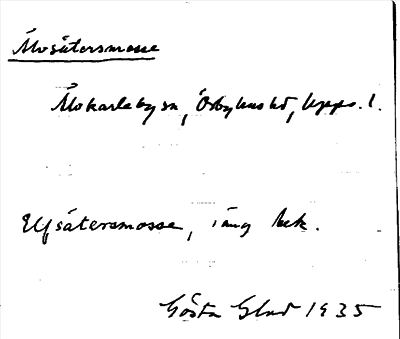 Älvsätersmosse
Älvkarleby sn, Örbyhus hd, Upps. l.
Elfsätersmosse, äng bek.
Gösta Glad 1935